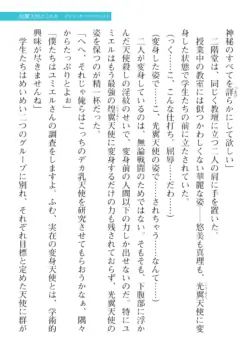 神秘のすべてを詳らかにして欲しい」
　二階堂は、同じく教壇に立つ二人の肩に手を置いた。
　授業中の教室には似つかわしくない華麗な姿――悠美も真理も、光翼天使に変
身した状態で学生たちの前に立たされていた。
（変身した姿で……こ、こんな仕打ち……屈辱……だわ）
（くっ……光翼天使の姿で……されちゃう……なんて……）
　二人が変身しているのは、無論戦闘のためではない。そもそも、下腹部に浮か
んだ天使殺しの淫紋のせいで、変身前の人間以下の力しか出せないのだ。特にユ
ミエルにはもう最強の煌翼天使に変身するだけの力も残されていないのだった。
「へへ、それじゃ俺らはこっちのデカ乳天使を研究させてもらおうかなぁ。隅々
までたっぷりとよぉ」
「僕たちはユミエルさんの調査をしますよ。ふむ、実在の変身天使とは、学術的
興味が尽きませんね」
　学生たちはめいめい二つのグループに別れ、それぞれ目標と定めた天使に群が